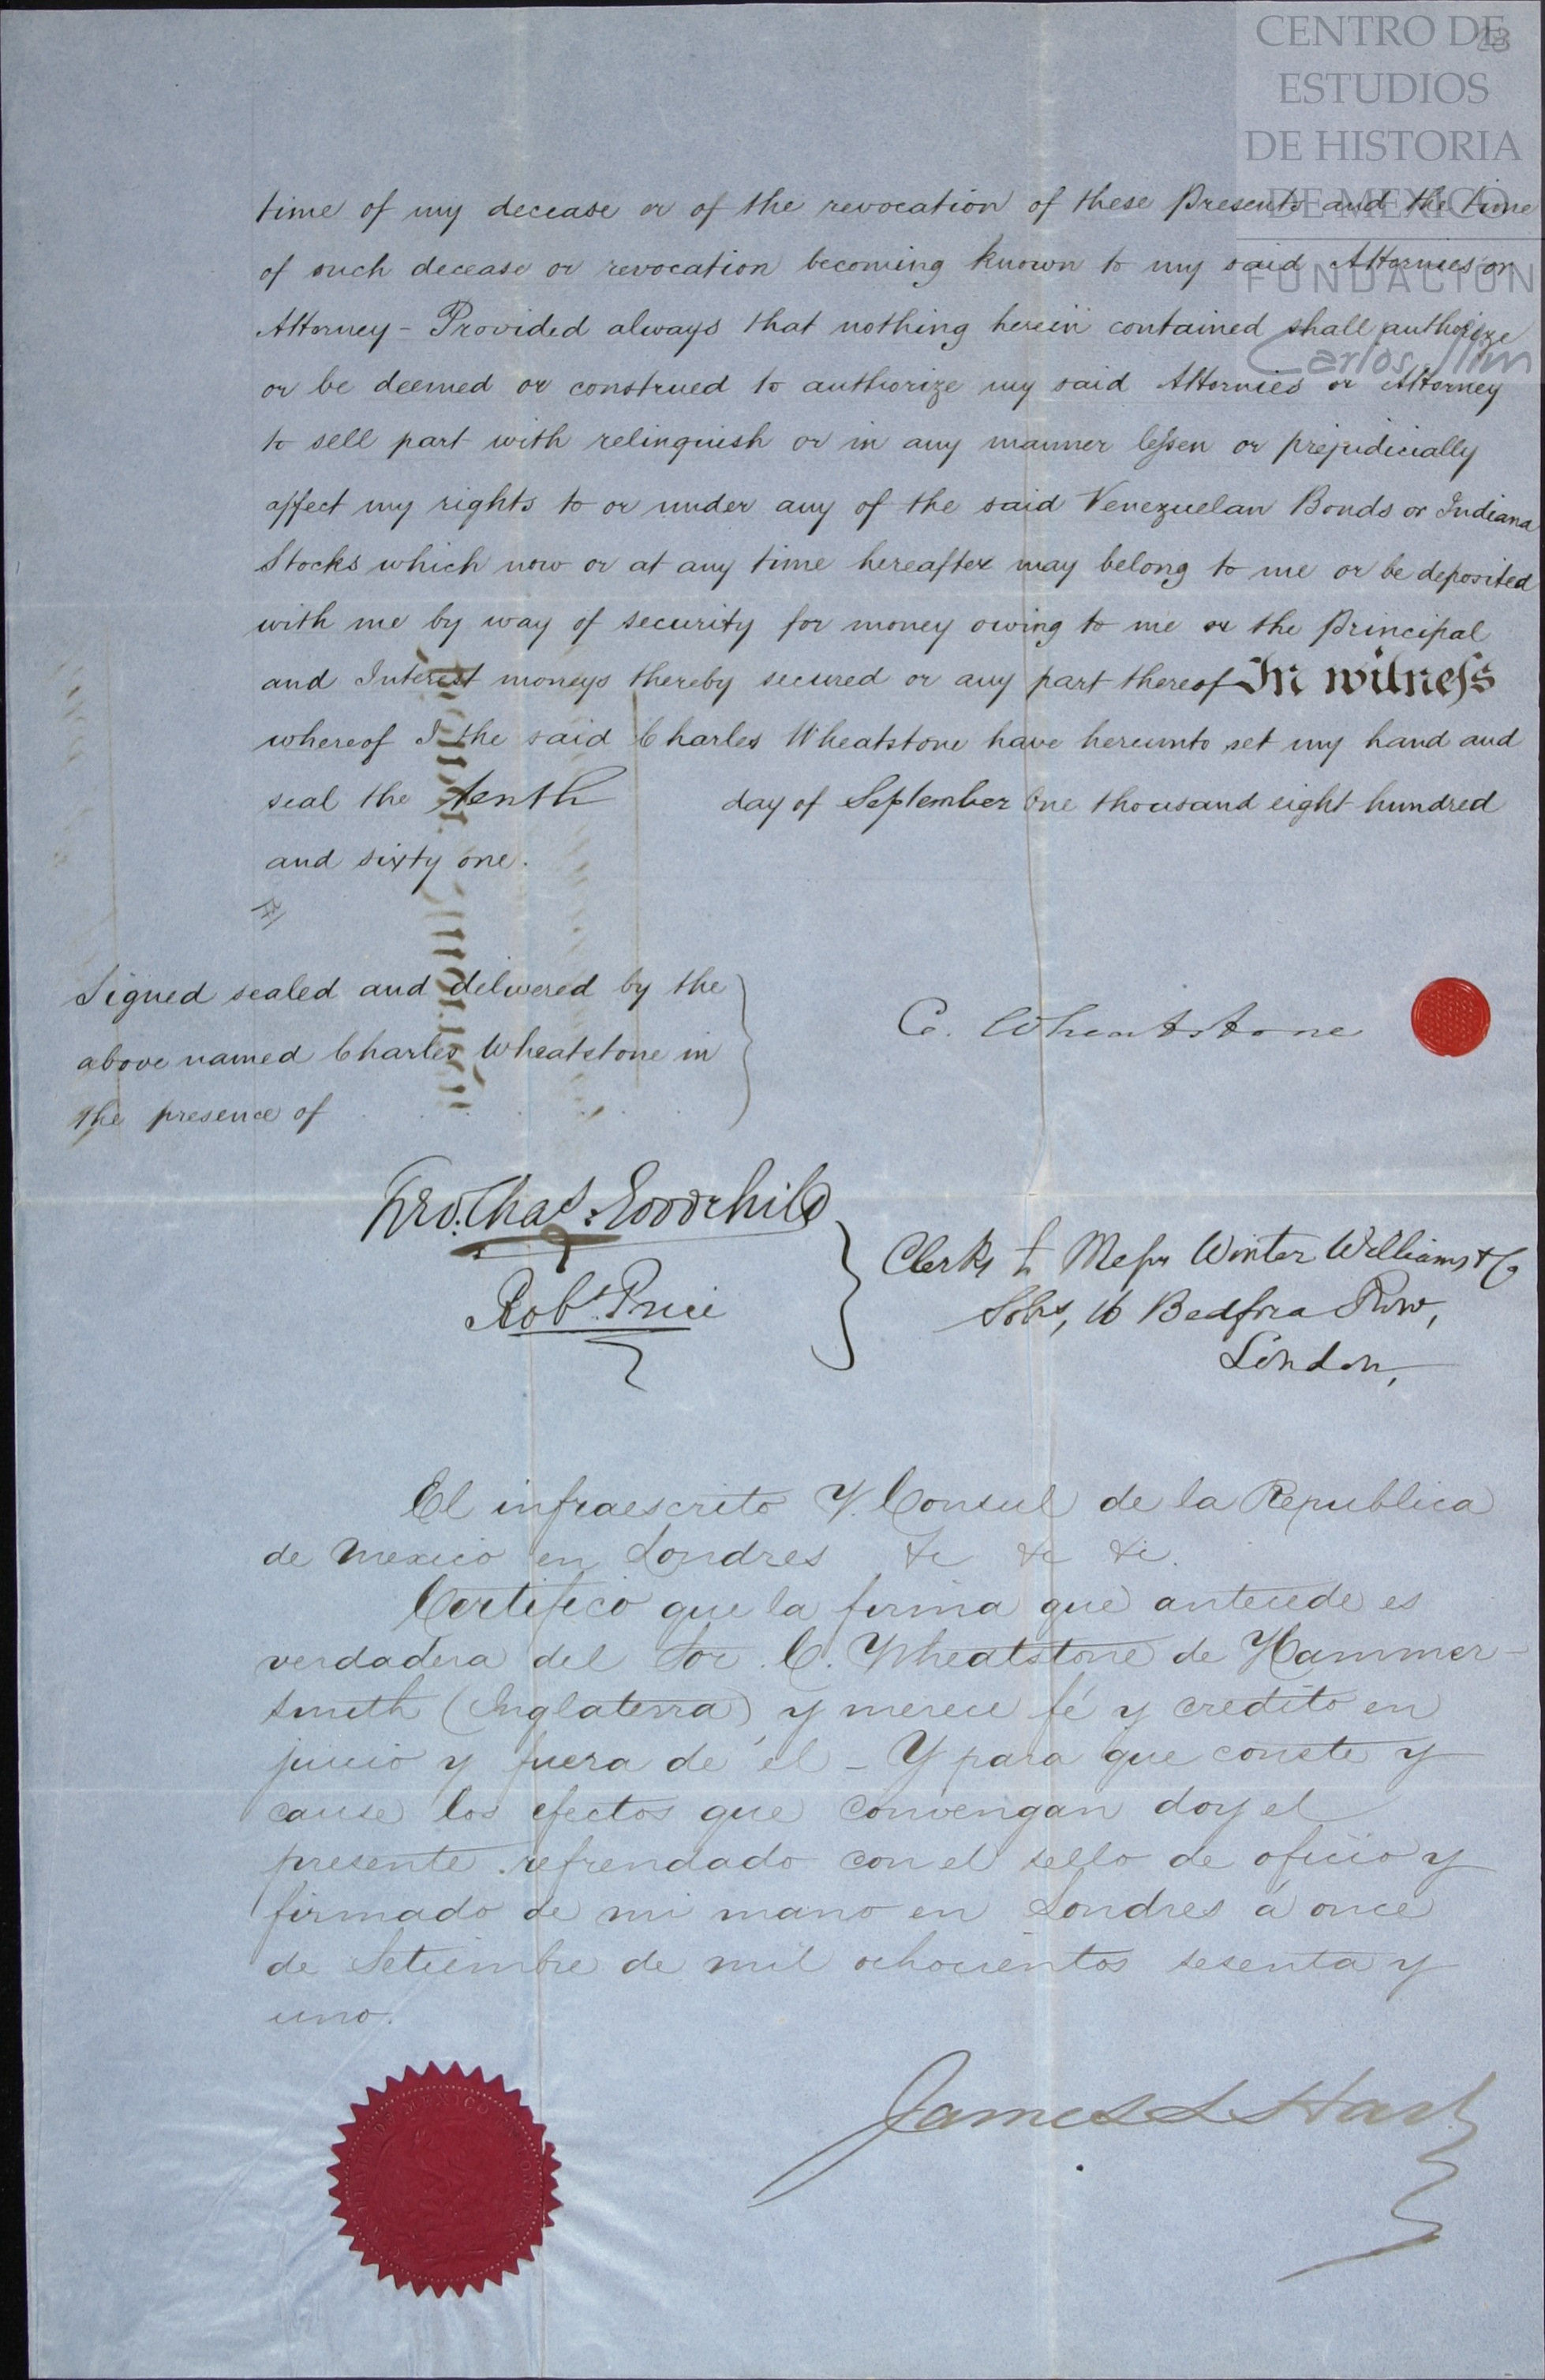 CENTRO DE
ESTUDIOS
DE HISTORIA
DE MEXICO
FUNDACIÓN
Carlos Slim
time of my decease or of the revocation of these Presents and the time
of such decease or revocation becoming known to my said Attornies or
Attorney – Provided always that nothing herein contained shall authorize
or be deemed or construed to authorize my said Attornies or Attorney
to sell part with relinquish or in any manner lessen or prejudicially
affect my rights to or under any of the said Venezuelan Bonds or Indiana
Stocks which now or at any time hereafter may belong to me or be deposited
with me by way of security for money owing to me or the Principal
and Interest moneys thereby secured or any part thereof In witness
whereof I the said Charles Wheatstone have hereunto set my hand and
seal the tenth day of September One thousand eight hundred
and sixty one.
Signed sealed and delivered by the
above named Charles Wheatstone in
the presence of
C. Wheatstone
Chas. Goodchild
Robt. Price
Clerks to Messrs Winter Williams & Co
Solrs, 16 Bedford Row,
London,
El infraescrito V. Consul de la Republica
de Mexico en Londres &c &c &c.
Certifico que la firma que antecede es
verdadera del Sor. C. Wheatstone de Hammer-
smith (Inglaterra) y merece fé y credito en
juicio y fuera de él – Y para que conste y
cause los efectos que convengan doy el
presente refrendado con el sello de oficio y
firmado de mi mano en Londres á once
de Setiembre de mil ochocientos sesenta y
uno.
James S Hart